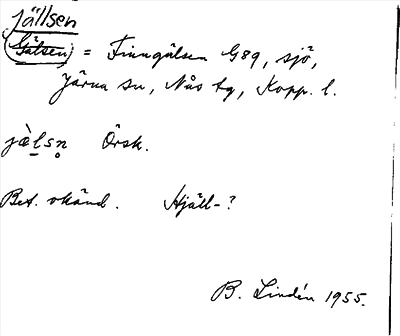 Jällsen
(Gälsen) = Finngälsen G89, sjö,
Järna sn, Nås tg, Kopp. l.
jὰlsn̥ Örsk.
Bet. okänd. Hjäll-?
B. Lindén 1955.